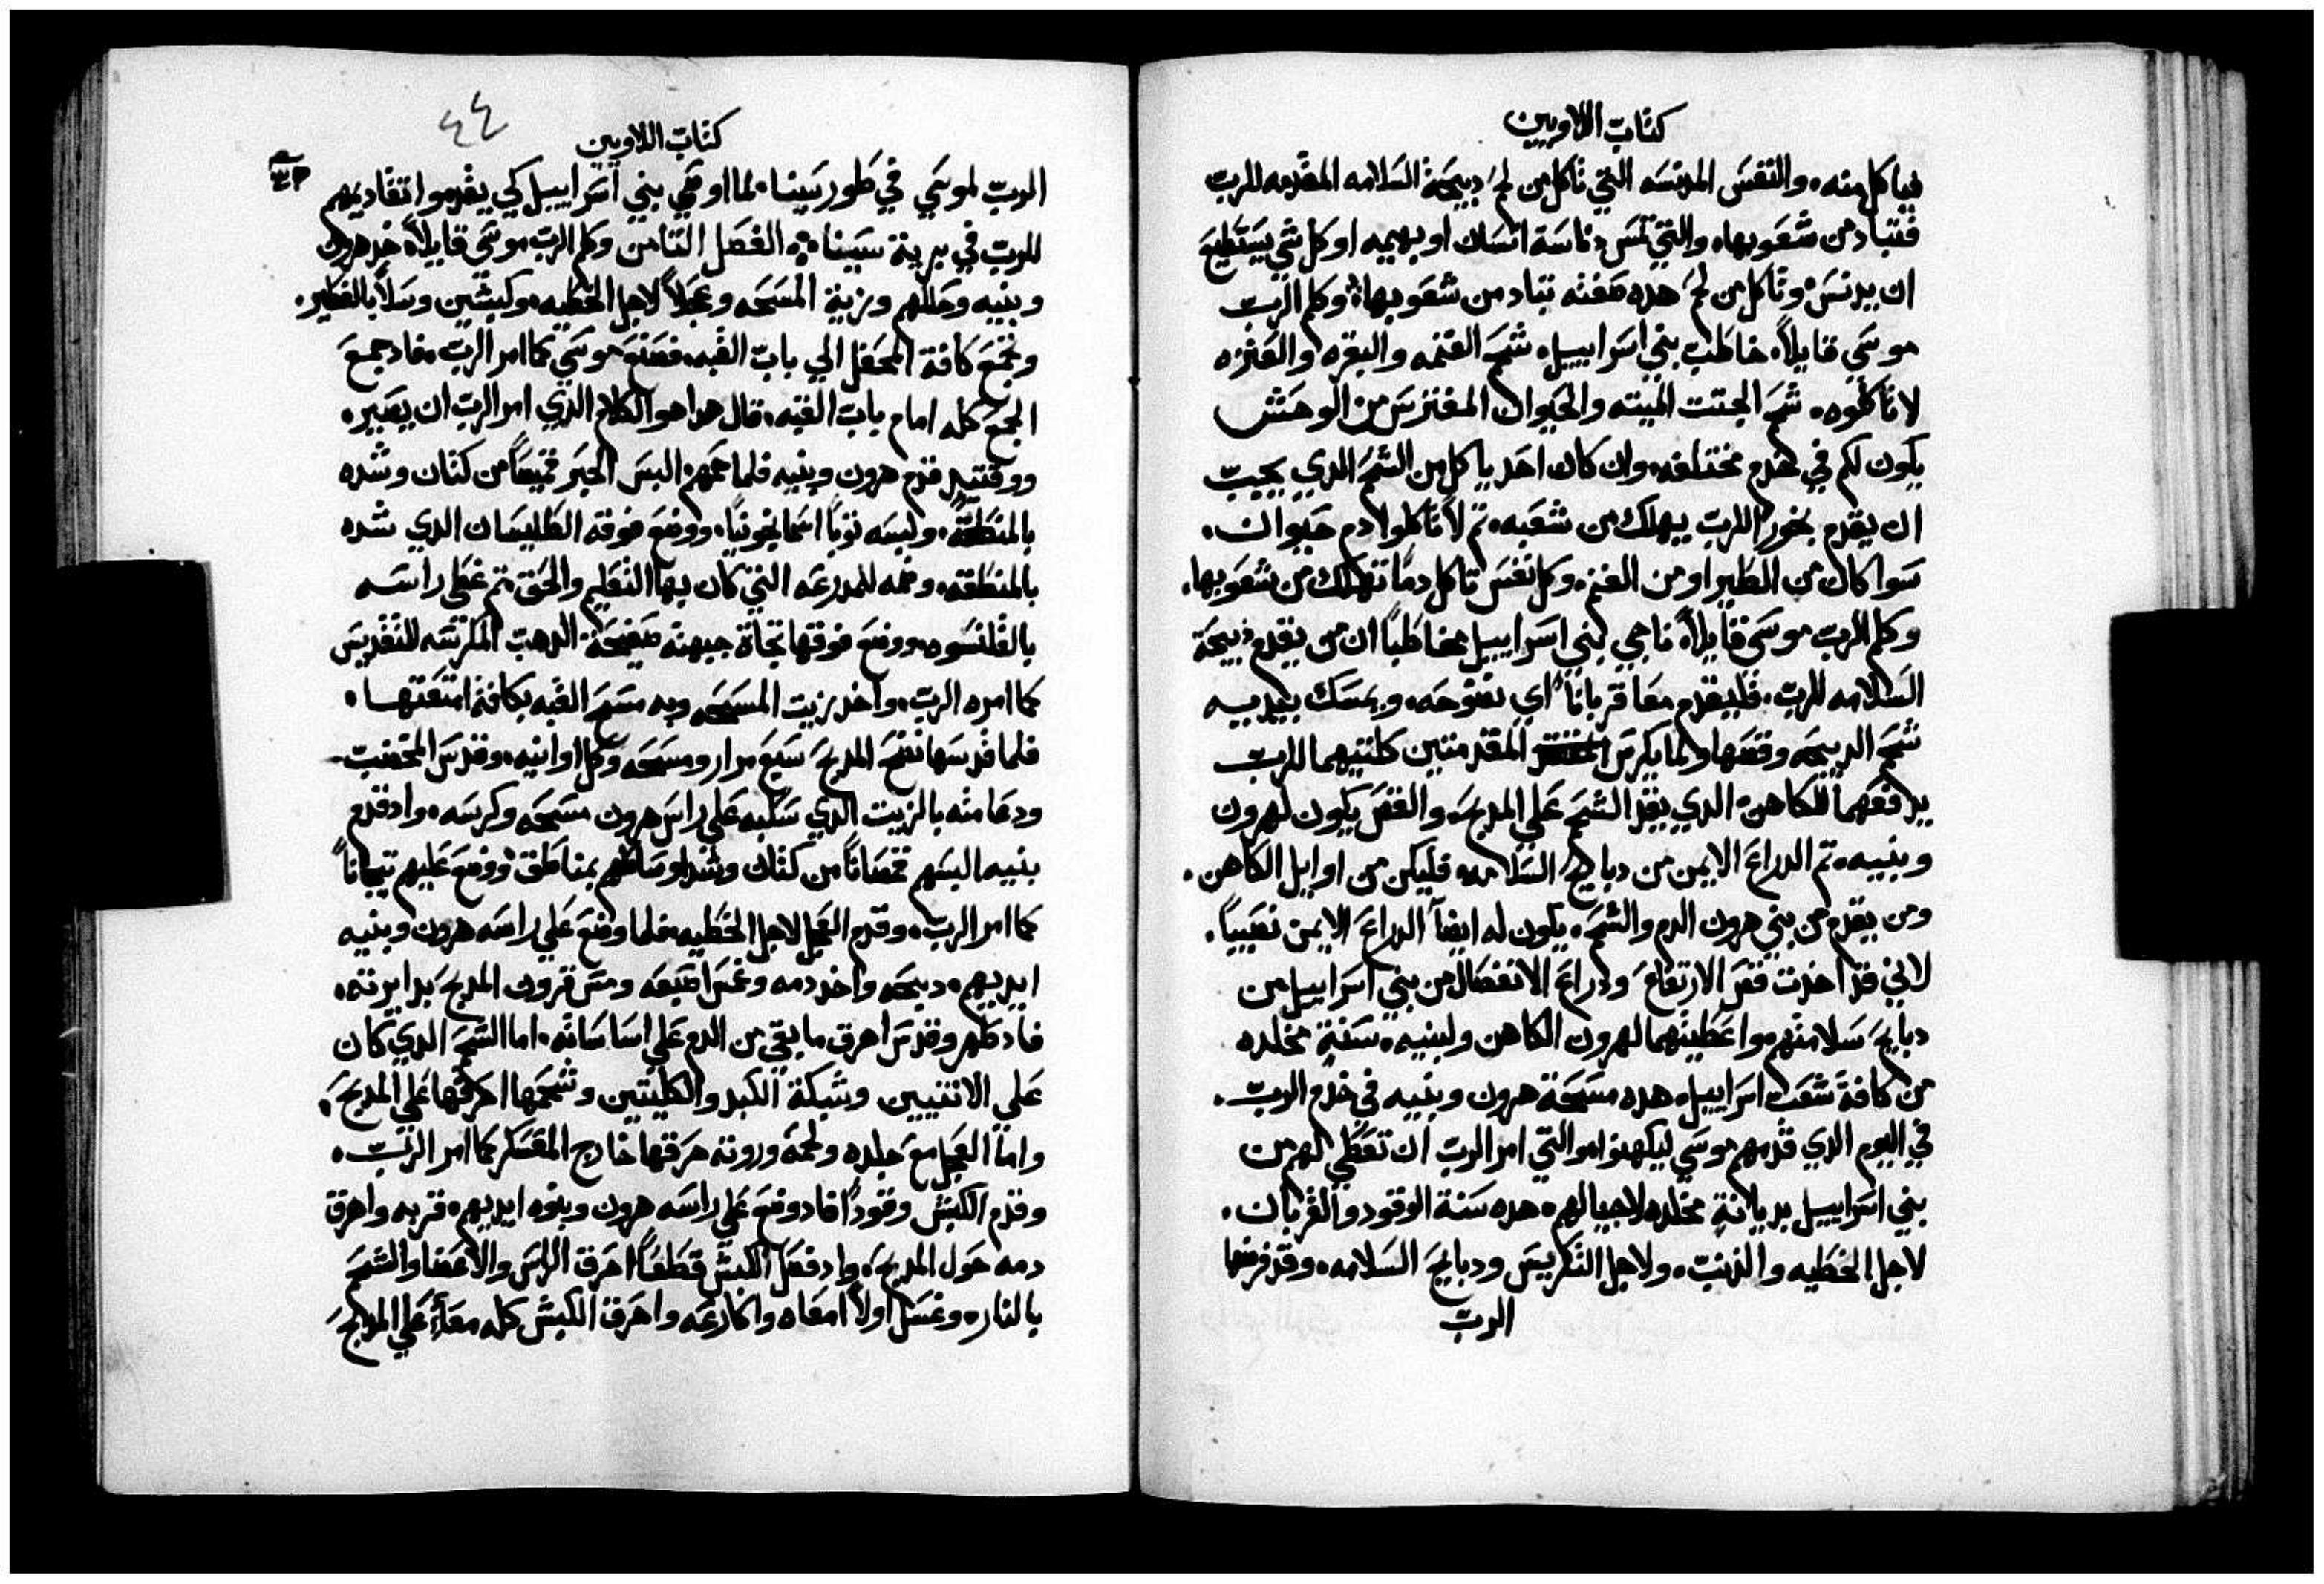 كتاب اللاويين
فياكل منه، والنفس المدنسه التي تاكل من لحم دبيحة السلامه المقدمه للرب
فتباد من شعوبها، والتي تمس دناسة انسان او بهيمه او كل شي يستطيع
ان يدنس وتاكل من لحم هده صفته تباد من شعوبها، وكلم الرب
موسي قايلاً، خاطب بني اسراييل، شحم الغنمه والبقره والعنزه
لا تاكلوه، شحم الجتت الميته والحيوان المفترس من الوحش
يكون لكم في خدم مختلفه، وان كان احد ياكل من الشحم الدي يجب
ان يقدم بخور للرب يهلك من شعبه، تم لا تاكلوا دم حيوان،
سوا كان من الطير او من الغنم، وكل نفس تاكل دماً تهلك من شعوبها،
وكلم الرب موسي قايلاً ناجي لبني اسراييل مخاطباً ان من يقدم دبيحة
السلامه للرب، فليقدم معا قرباناً اي نضوحه، ويمسك بيديه
شحم الدبيحه وقصها ولما يكرس المقدمتين كلتيهما للرب
يدفعهما للكاهن، الدي يقد الشحم علي المدبح، والقص يكون لهرون
وبنيه، تم الدراع الايمن من دبايح السلامه، فليكن من اوايل الكاهن،
ومن يقدم من بني هرون الدم والشحم، يكون له ايضاً الدراع الايمن نصيباً،
لاني قد اخدت قص الارتفاع ودراع الانفصال من بني اسراييل من
دبايح سلامتهم، واعطيتهما لهرون الكاهن ولبنيه، سنةٍ مخلده
من كافة شعب اسراييل، هده مسحة هرون وبنيه في خدم الرب،
في اليوم الدي قدمهم موسي ليكهنوا، والتي امر الرب ان تعطي لهم من
بني اسراييل بديانةٍ مخلده لاجيالهم، هده سنة الوقود والقربان،
لاجل الخطيه والدنب، ولاجل التكريس ودبايح السلامه، وقد فرضها
الرب
٤٤
كتاب اللاويين
الرب لموسي في طور سينا، لما اوصي بني اسراييل كي يقدموا تقاديمهم
للرب في برية سينا، الفصل التامن وكلم الرب موسي قايلاً، خد هرون
وبنيه وحللهم وزيت المسحه وعجلاً لاجل الخطيه، وكبشين وسلاً بالفطير،
وتجمع كافة المحفل الي باب القبه، فصنع موسي كما امر الرب، فاد جمع
الجمع كله امام باب القبه، قال هدا هو الكلام الدي امر الرب ان يصير،
ووقتيد قدم هرون وبنيه فلما حمهم البس الحبر قميصاً من كتان وشده
بالمنطقة، ولبسه توباً اسمانجونياً، ووضع فوقه الطليسان الدي شده
بالمنطقه، وضمه للمدرعه التي كان بها التعليم والحق، تم غطي راسه
بالقلنسوه، ووضع فوقها تجاة جبهته صفيحة الدهب المكرسه للتقديس
كما امره الرب، واخد زيت المسحه وبه مسح القبه بكافة امتعتها،
فلما قدسها نضح المدبح سبع مرار ومسحه وكل اوانيه، وقدس المخضب
ودعامته بالزيت الدي سكبه علي راس هرون مسحه وكرسه، واد قدم
بنيه البسهم قمصاناً من كتان وشد اوساطهم بمناطق ووضع عليهم تيجاناً
كما امر الرب، وقدم العجل لاجل الخطيه، فلما وضع علي راسه هرون وبنيه
ايديهم، دبحه واخد دمه وغمس اصبعه ومس قرون المدبح بدايرته،
فاد طهر وقدس اهرق ما بقي من الدم علي اساساته، اما الشحم الدي كان
علي الانتنيين وشبكة الكبد والكليتين وشحمها احرقها علي المدبح،
واما العجل مع جلده ولحمه وروته حرقها خارج المعسكر كما امر الرب،
وقدم الكبش وقوداً فاد وضع علي راسه هرون وبنوه ايديهم، قربه واهرق
دمه حول المدبح، واد فصل الكبش قطعاً احرق الراس والاعضا والشحم
بالنار، وغسل اولاً امعاه واكارعه واحرق الكبش كله معاً علي المدبح